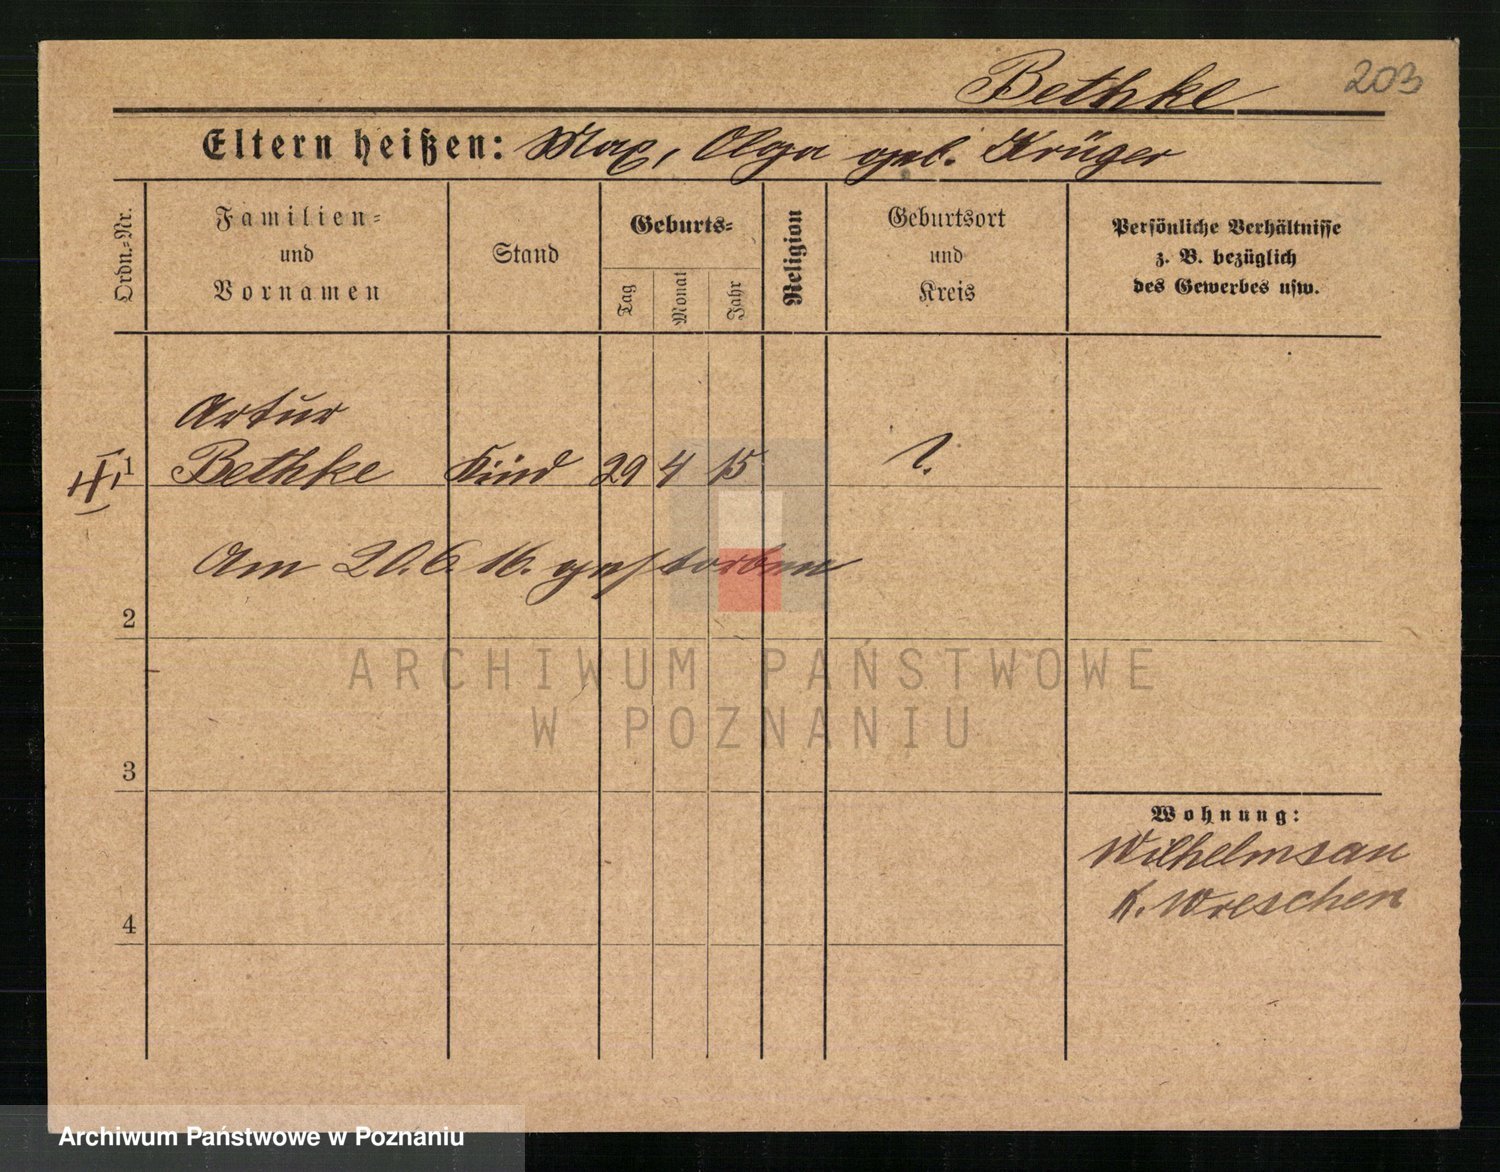 Bethke 203
Eltern heißen: Max, Olga geb. Krüger
Ordn.=Nr.
Familien=
und
Vornamen
Stand
Geburts=
Tag
Monat
Jahr
Religion
Geburtsort
und
Kreis
Persönliche Verhältnisse
z. B. bezüglich
des Gewerbes usw.
Artur
1 Bethke Kind 29 4 15 ?
Am 20.6.16. gestorben
2
3
4
Wohnung:
Wilhelmsau
K. Wreschen
ARCHIWUM PAŃSTWOWE
W POZNANIU
Archiwum Państwowe w Poznaniu